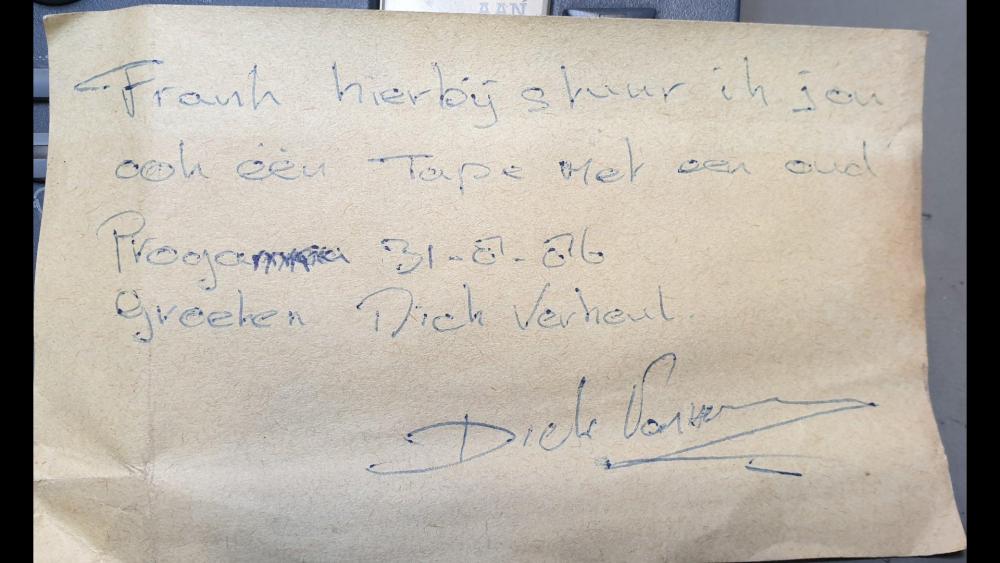 AAN
Frank hierbij stuur ik jou
ook één Tape met een oud
Progamma 31-8-86
Groeten Dick Verheul.
Dick